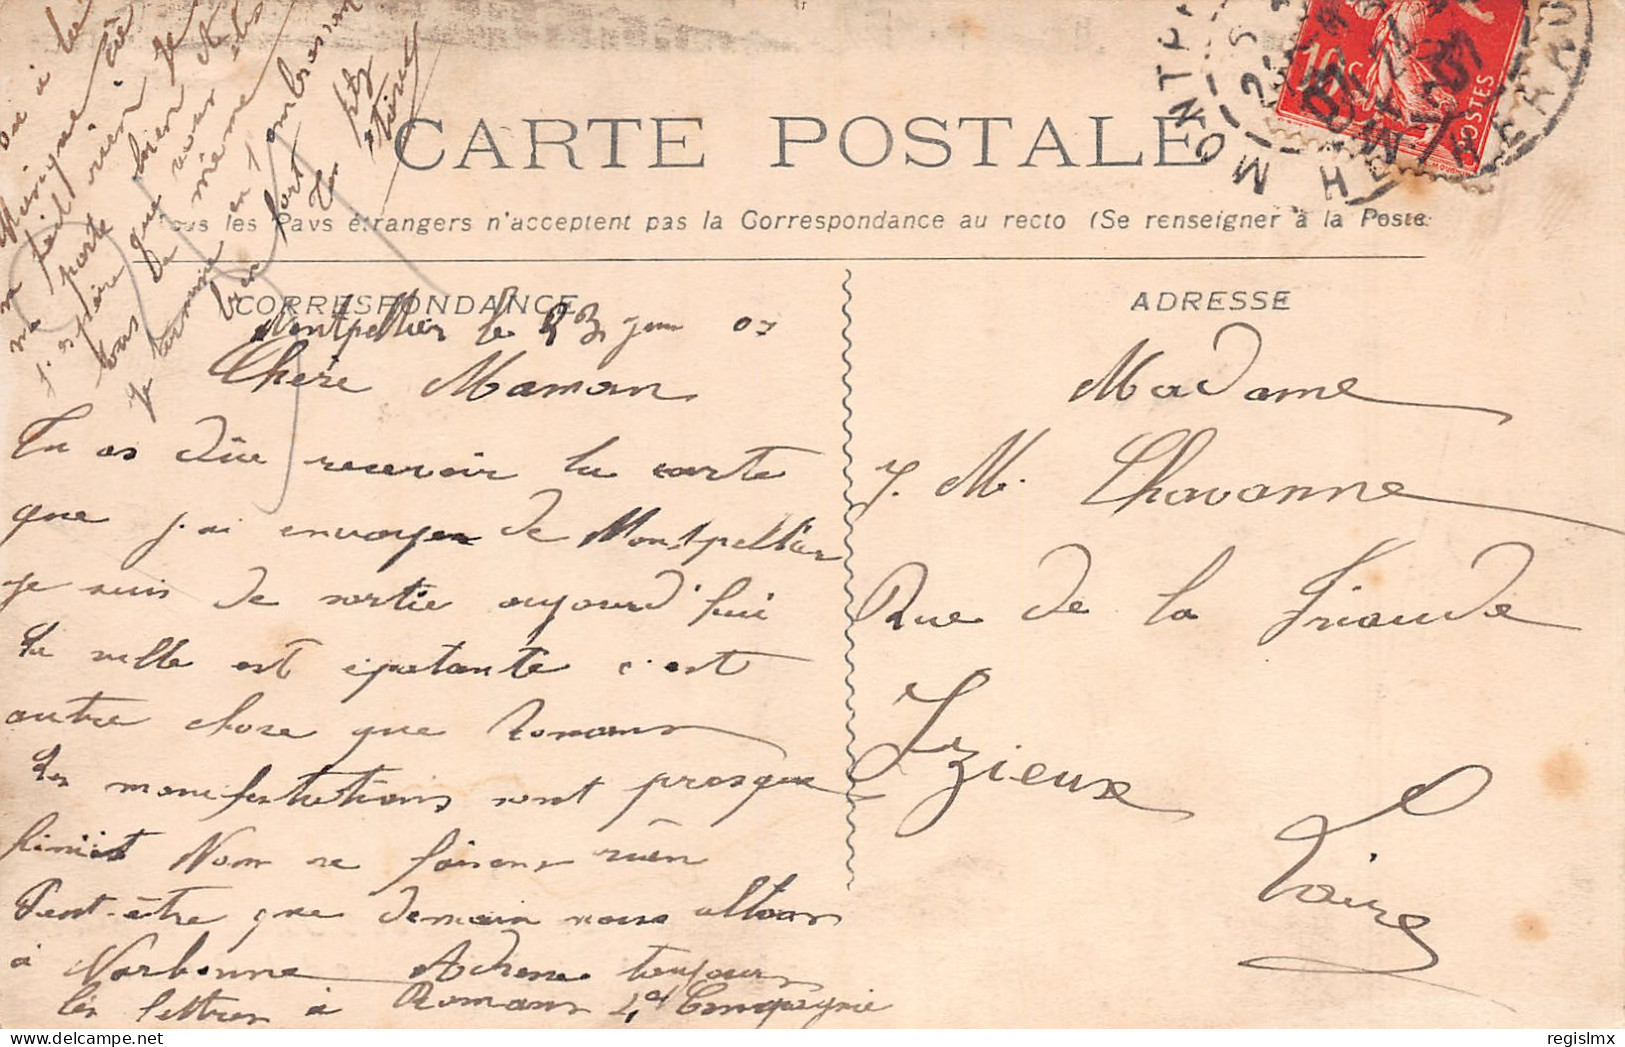 CARTE POSTALE
Tous les Pays étrangers n'acceptent pas la Correspondance au recto (Se renseigner à la Poste
CORRESPONDANCE
ADRESSE
Montpellier le 23 juin 07
Chère Maman
Tu as dûe recevoir la carte
que j'ai envoyer de Montpellier
je suis de sortie aujourd'hui
la ville est épatante c'est
autre chose que Romans
les manifestations sont presque
finies Nous ne faisons rien
Peut-être que demain nous allons
à Narbonne Adresse toujours
les lettres à Romans 4e Compagnie
à
rien je
porte bien et
j'espère que vous êtes
tous de même
je termine en
bien fort
embrassant
ton fils
Madame
J. M. Chavanne
Rue de la Friaude
Izieux
Loire
10 c
POSTES
MONTP
HERAU
regislmx